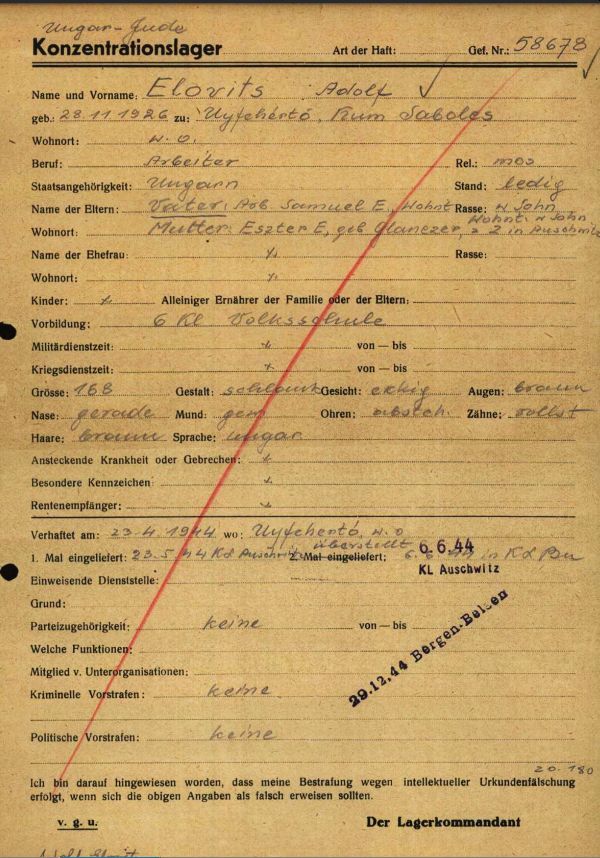 Ungar-Jude
Konzentrationslager Art der Haft: Gef. Nr.: 58678
Name und Vorname: Elovits Adolf
geb.: 28.11.1926 zu: Uyfehértó, Kum Saboles
Wohnort: w.o.
Beruf: Arbeiter Rel.: mos
Staatsangehörigkeit: Ungarn Stand: ledig
Name der Eltern: Vater: Arb. Samuel E., Wohnt Rasse: w Sohn
Wohnort: Mutter: Eszter E, geb Glanczer, Wohnt: w Sohn z Z in Auschwitz
Name der Ehefrau: x Rasse:
Wohnort: x
Kinder: x Alleiniger Ernährer der Familie oder der Eltern:
Vorbildung: 6 Kl Volksschule
Militärdienstzeit: x von — bis
Kriegsdienstzeit: x von — bis
Grösse: 168 Gestalt: schlank Gesicht: eckig Augen: braun
Nase: gerade Mund: Ohren: absteh. Zähne: vollst
Haare: braun Sprache: ungar
Ansteckende Krankheit oder Gebrechen: x
Besondere Kennzeichen: x
Rentenempfänger: x
Verhaftet am: 23.4.1944 wo: Uyfehértó, w.o
1. Mal eingeliefert: 23.5.44 Kd Auschwitz überstellt 2. Mal eingeliefert: 6.6.44 in Kd Bu
6.6.44
KL Auschwitz
Einweisende Dienststelle:
Grund:
Parteizugehörigkeit: keine von — bis
Welche Funktionen:
Mitglied v. Unterorganisationen:
29.12.44 Bergen-Belsen
Kriminelle Vorstrafen: keine
Politische Vorstrafen: keine
20.180
Ich bin darauf hingewiesen worden, dass meine Bestrafung wegen intellektueller Urkundenfälschung
erfolgt, wenn sich die obigen Angaben als falsch erweisen sollten.
v. g. u. Der Lagerkommandant